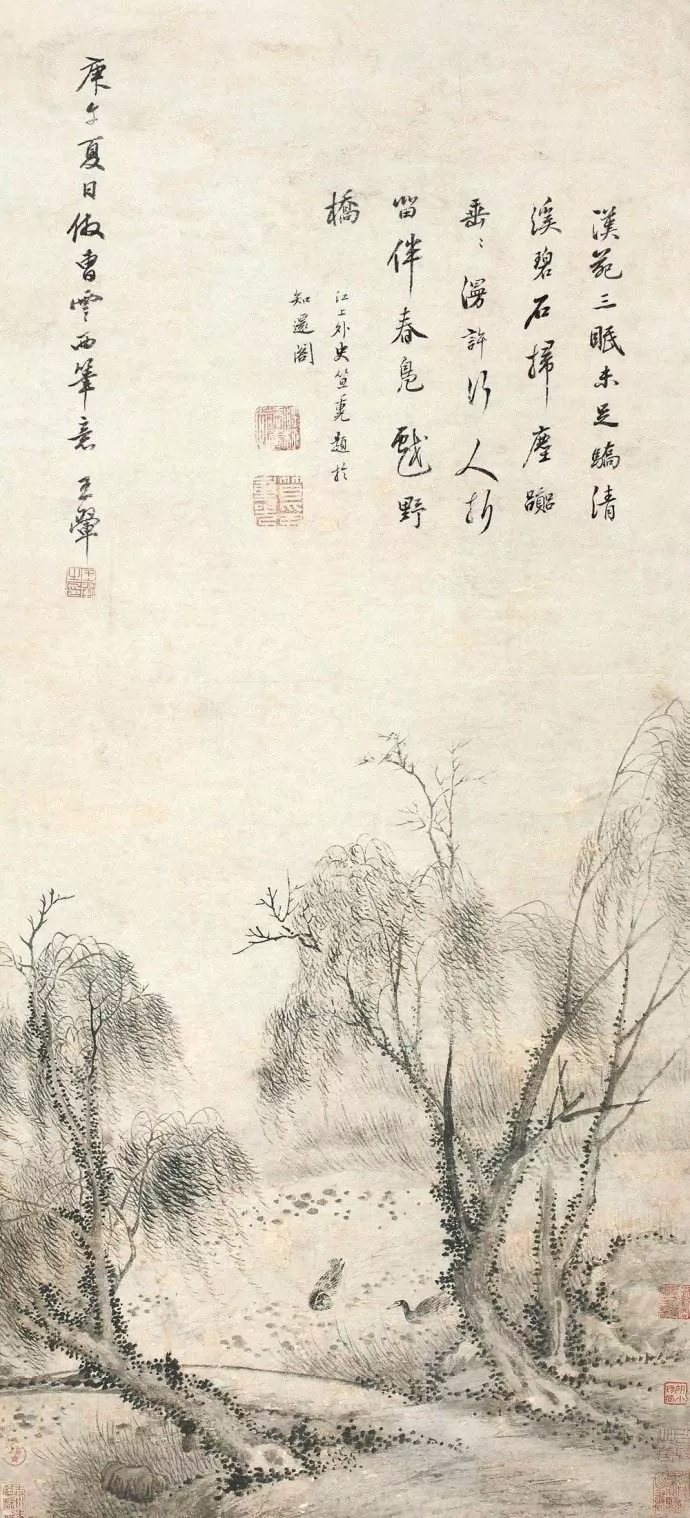 漢苑三眠未足驕清
溪碧石掃塵囂
垂〻漫許行人折
畱伴春鳧戲野
橋
江上外史笪重光題於
知還閣
庚午夏日倣曹雲西筆意 王翬